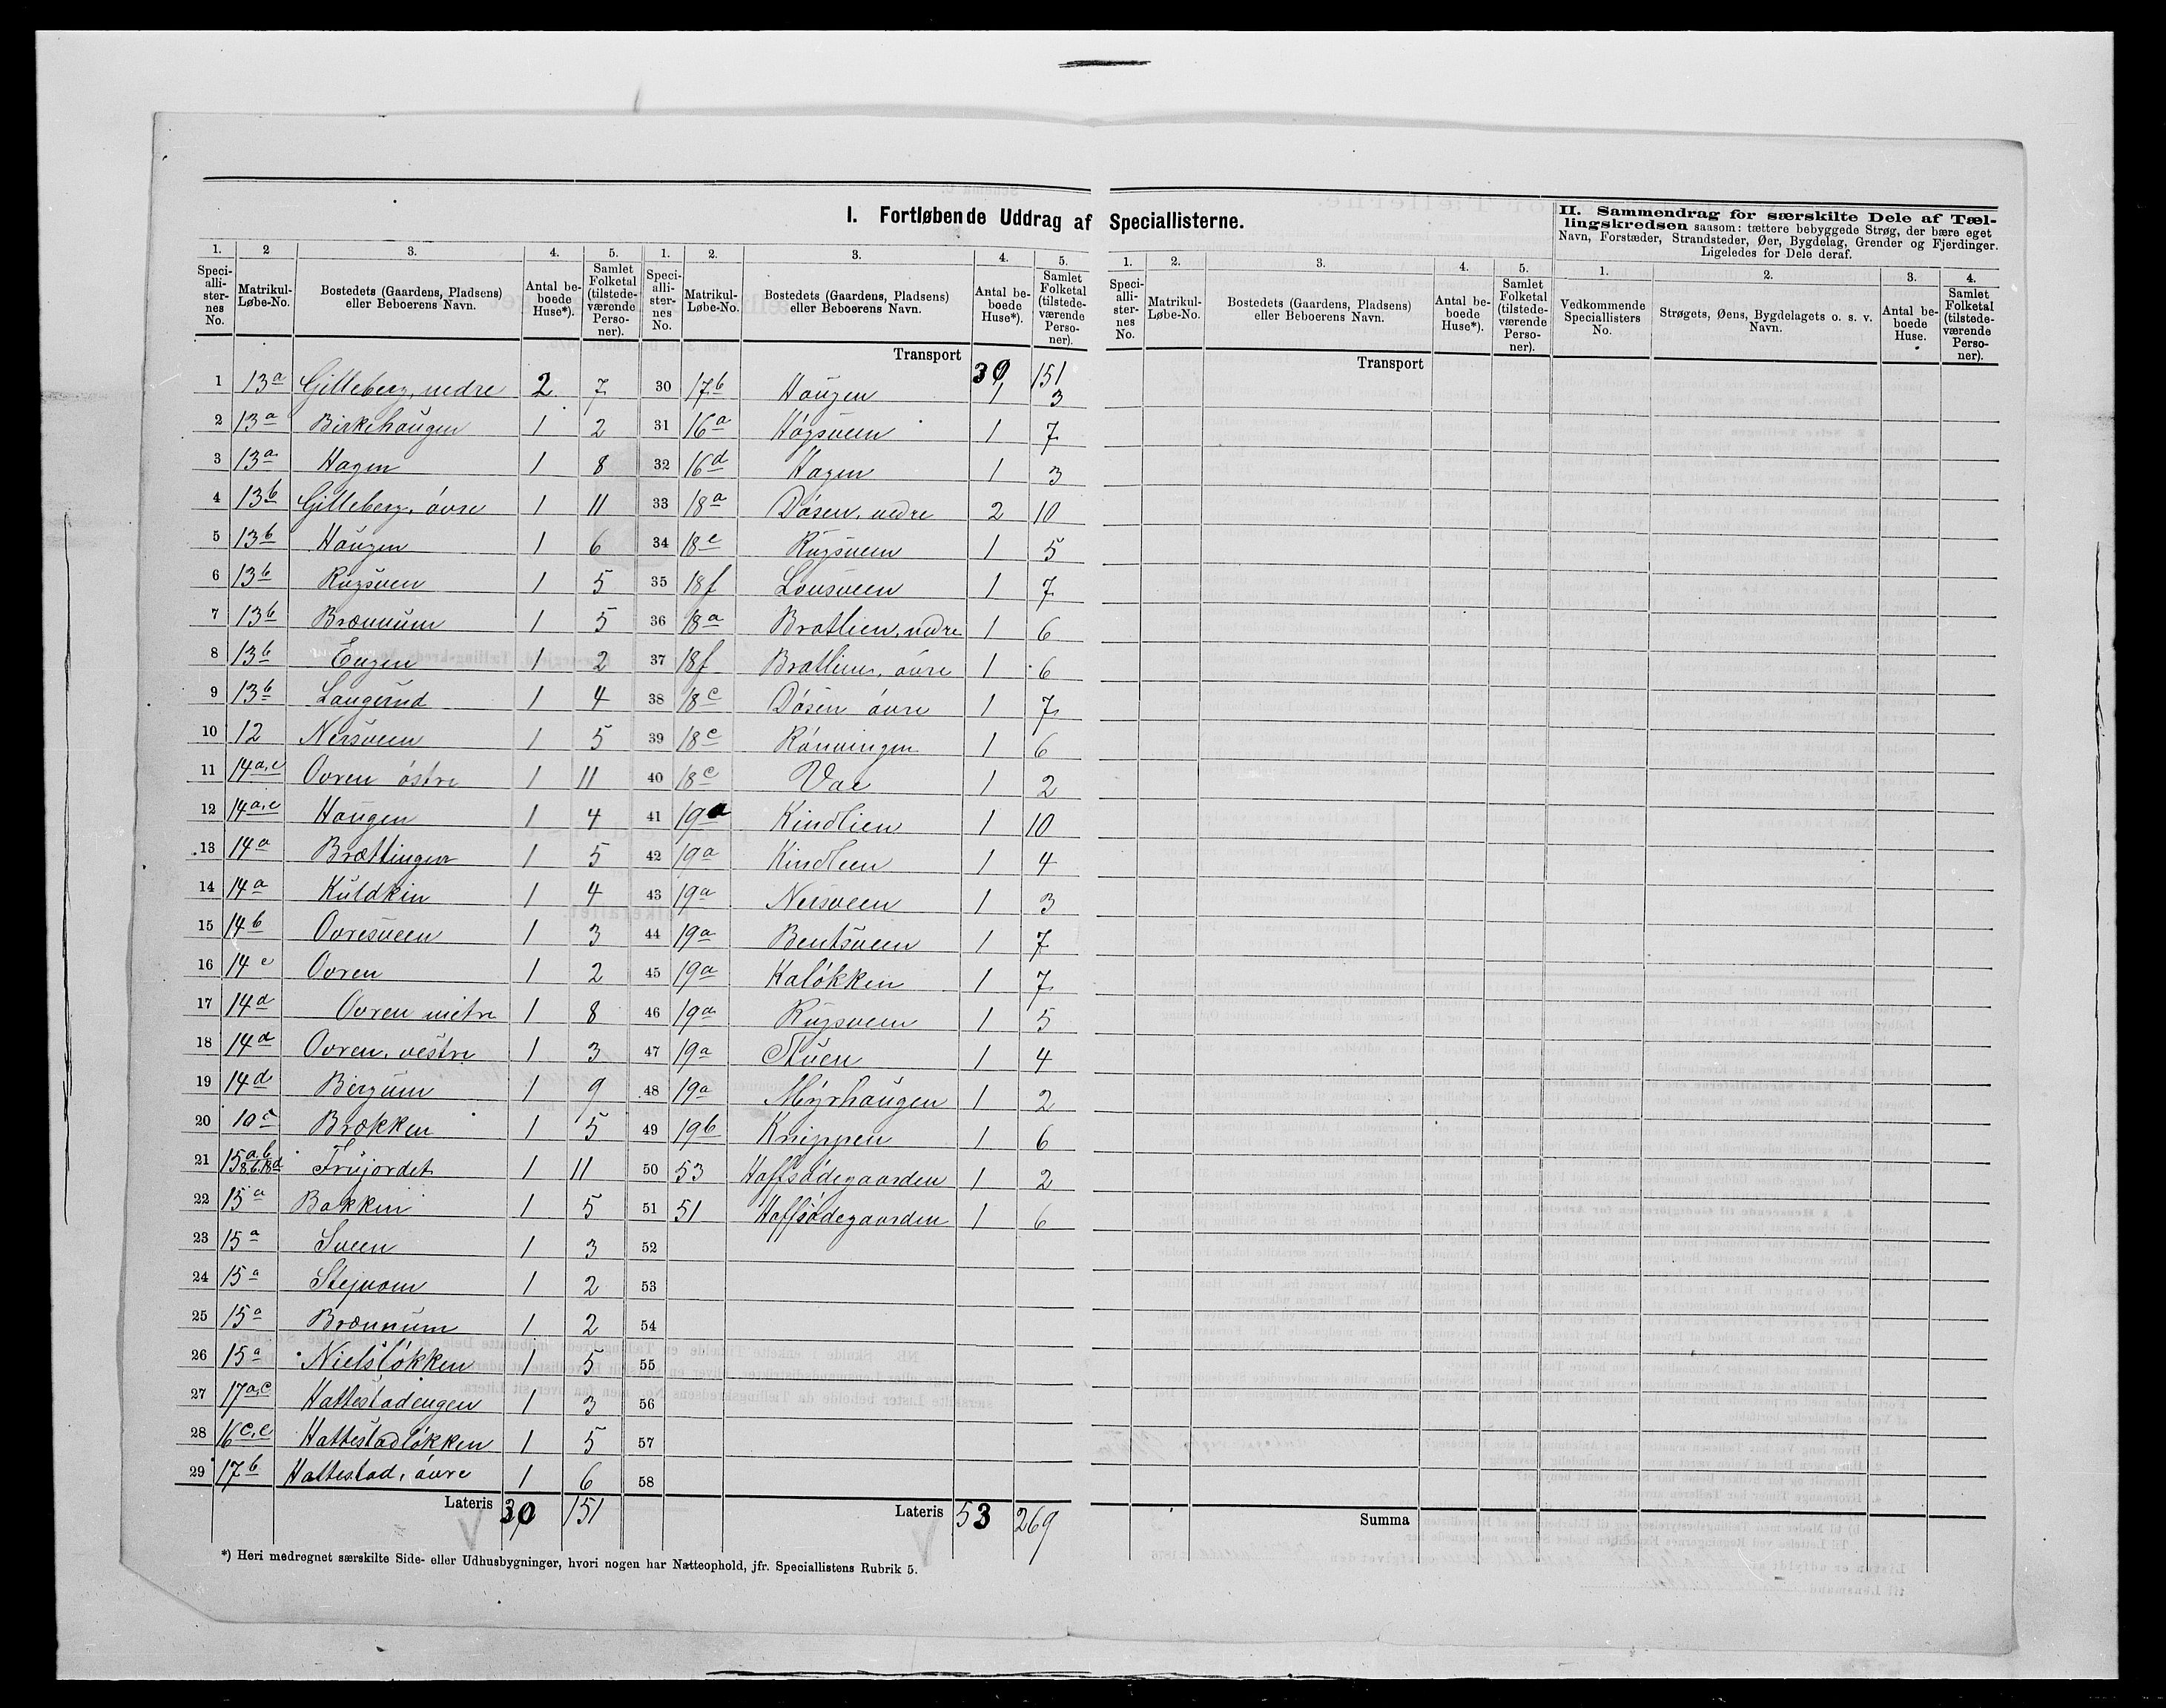 I. Fortløbende Uddrag af Speciallisterne.
II. Sammendrag for særskilte Dele af Tællingskredsen saasom: tættere bebyggede Strøg, der bære eget
Navn, Forstæder, Strandsteder, Øer, Bygdelag, Grender og Fjerdinger.
Ligeledes for Dele deraf.
1. 2 3. 4. 5. 1. 2. 3. 4. 5. 1. 2. 3. 4. 5. 1. 2. 3. 4.
Speciallisternes No. Matrikul-Løbe-No. Bostedets (Gaardens, Pladsens) eller Beboerens Navn. Antal beboede Huse*). Samlet Folketal (tilstedeværende Personer).
Speciallisternes No. Matrikul-Løbe-No. Bostedets (Gaardens, Pladsens) eller Beboerens Navn. Antal beboede Huse*). Samlet Folketal (tilstedeværende Personer).
Speciallisternes No. Matrikul-Løbe-No. Bostedets (Gaardens, Pladsens) eller Beboerens Navn. Antal beboede Huse*). Samlet Folketal (tilstedeværende Personer).
Vedkommende Speciallisters No. Strøgets, Øens, Bygdelagets o. s. v. Navn. Antal beboede Huse. Samlet Folketal (tilstedeværende Personer).
1 13a Gilleberg, nedre 2 7
2 13a Birkehaugen 1 2
3 13a Hagen 1 8
4 13b Gilleberg, óvre 1 11
5 13b Haugen 1 6
6 13b Rugsveen 1 5
7 13b Brænnum 1 5
8 13b Engen 1 2
9 13b Langerud 1 4
10 12 Nersveen 1 5
11 14a,c Ovren óstre 1 11
12 14a,c Haugen 1 4
13 14a Brættingen 1 5
14 14a Kuldkin 1 4
15 14b Ovresveen 1 3
16 14c Ovren 1 2
17 14d Ovren metre 1 8
18 14d Ovren, vestre 1 3
19 14d Bergum 1 9
20 10c Brækken 1 5
21 15a,b 18b,18d Frujordet 1 11
22 15a Bakken 1 5
23 15a Sveen 1 3
24 15a 1 2
25 15a Brænnum 1 2
26 15a Nielslókken 1 5
27 17a,c Hattestadengen 1 3
28 16c,e Hattestadlókken 1 5
29 17b Hattestad, óvre 1 6
Lateris 30 151
Transport 30 151
30 17b Haugen 1 3
31 16a Hógsveen 1 7
32 16d Hagen 1 3
33 18a Dósen, nedre 2 10
34 18e Rugsveen 1 5
35 18f Lousveen 1 7
36 18a Bratlien, nedre 1 6
37 18f Bratlien, óvre 1 6
38 18c Dósen óvre 1 7
39 18c Rónningen 1 6
40 18c 1 2
41 19a Kindlien 1 10
42 19a Kindlien 1 4
43 19a Nersveen 1 3
44 19a Bentsveen 1 7
45 19a Kalókken 1 7
46 19a Rugsveen 1 5
47 19a Stuen 1 4
48 19a Myrhaugen 1 2
49 19b Knippen 1 6
50 53 Haffsódegaarden 1 2
51 51 Haffsódegaarden 1 6
52
53
54
55
56
57
58
Lateris 53 269
Transport
Summa
*) Heri medregnet særskilte Side- eller Udhusbygninger, hvori nogen har Natteophold, jfr. Speciallistens Rubrik 5.